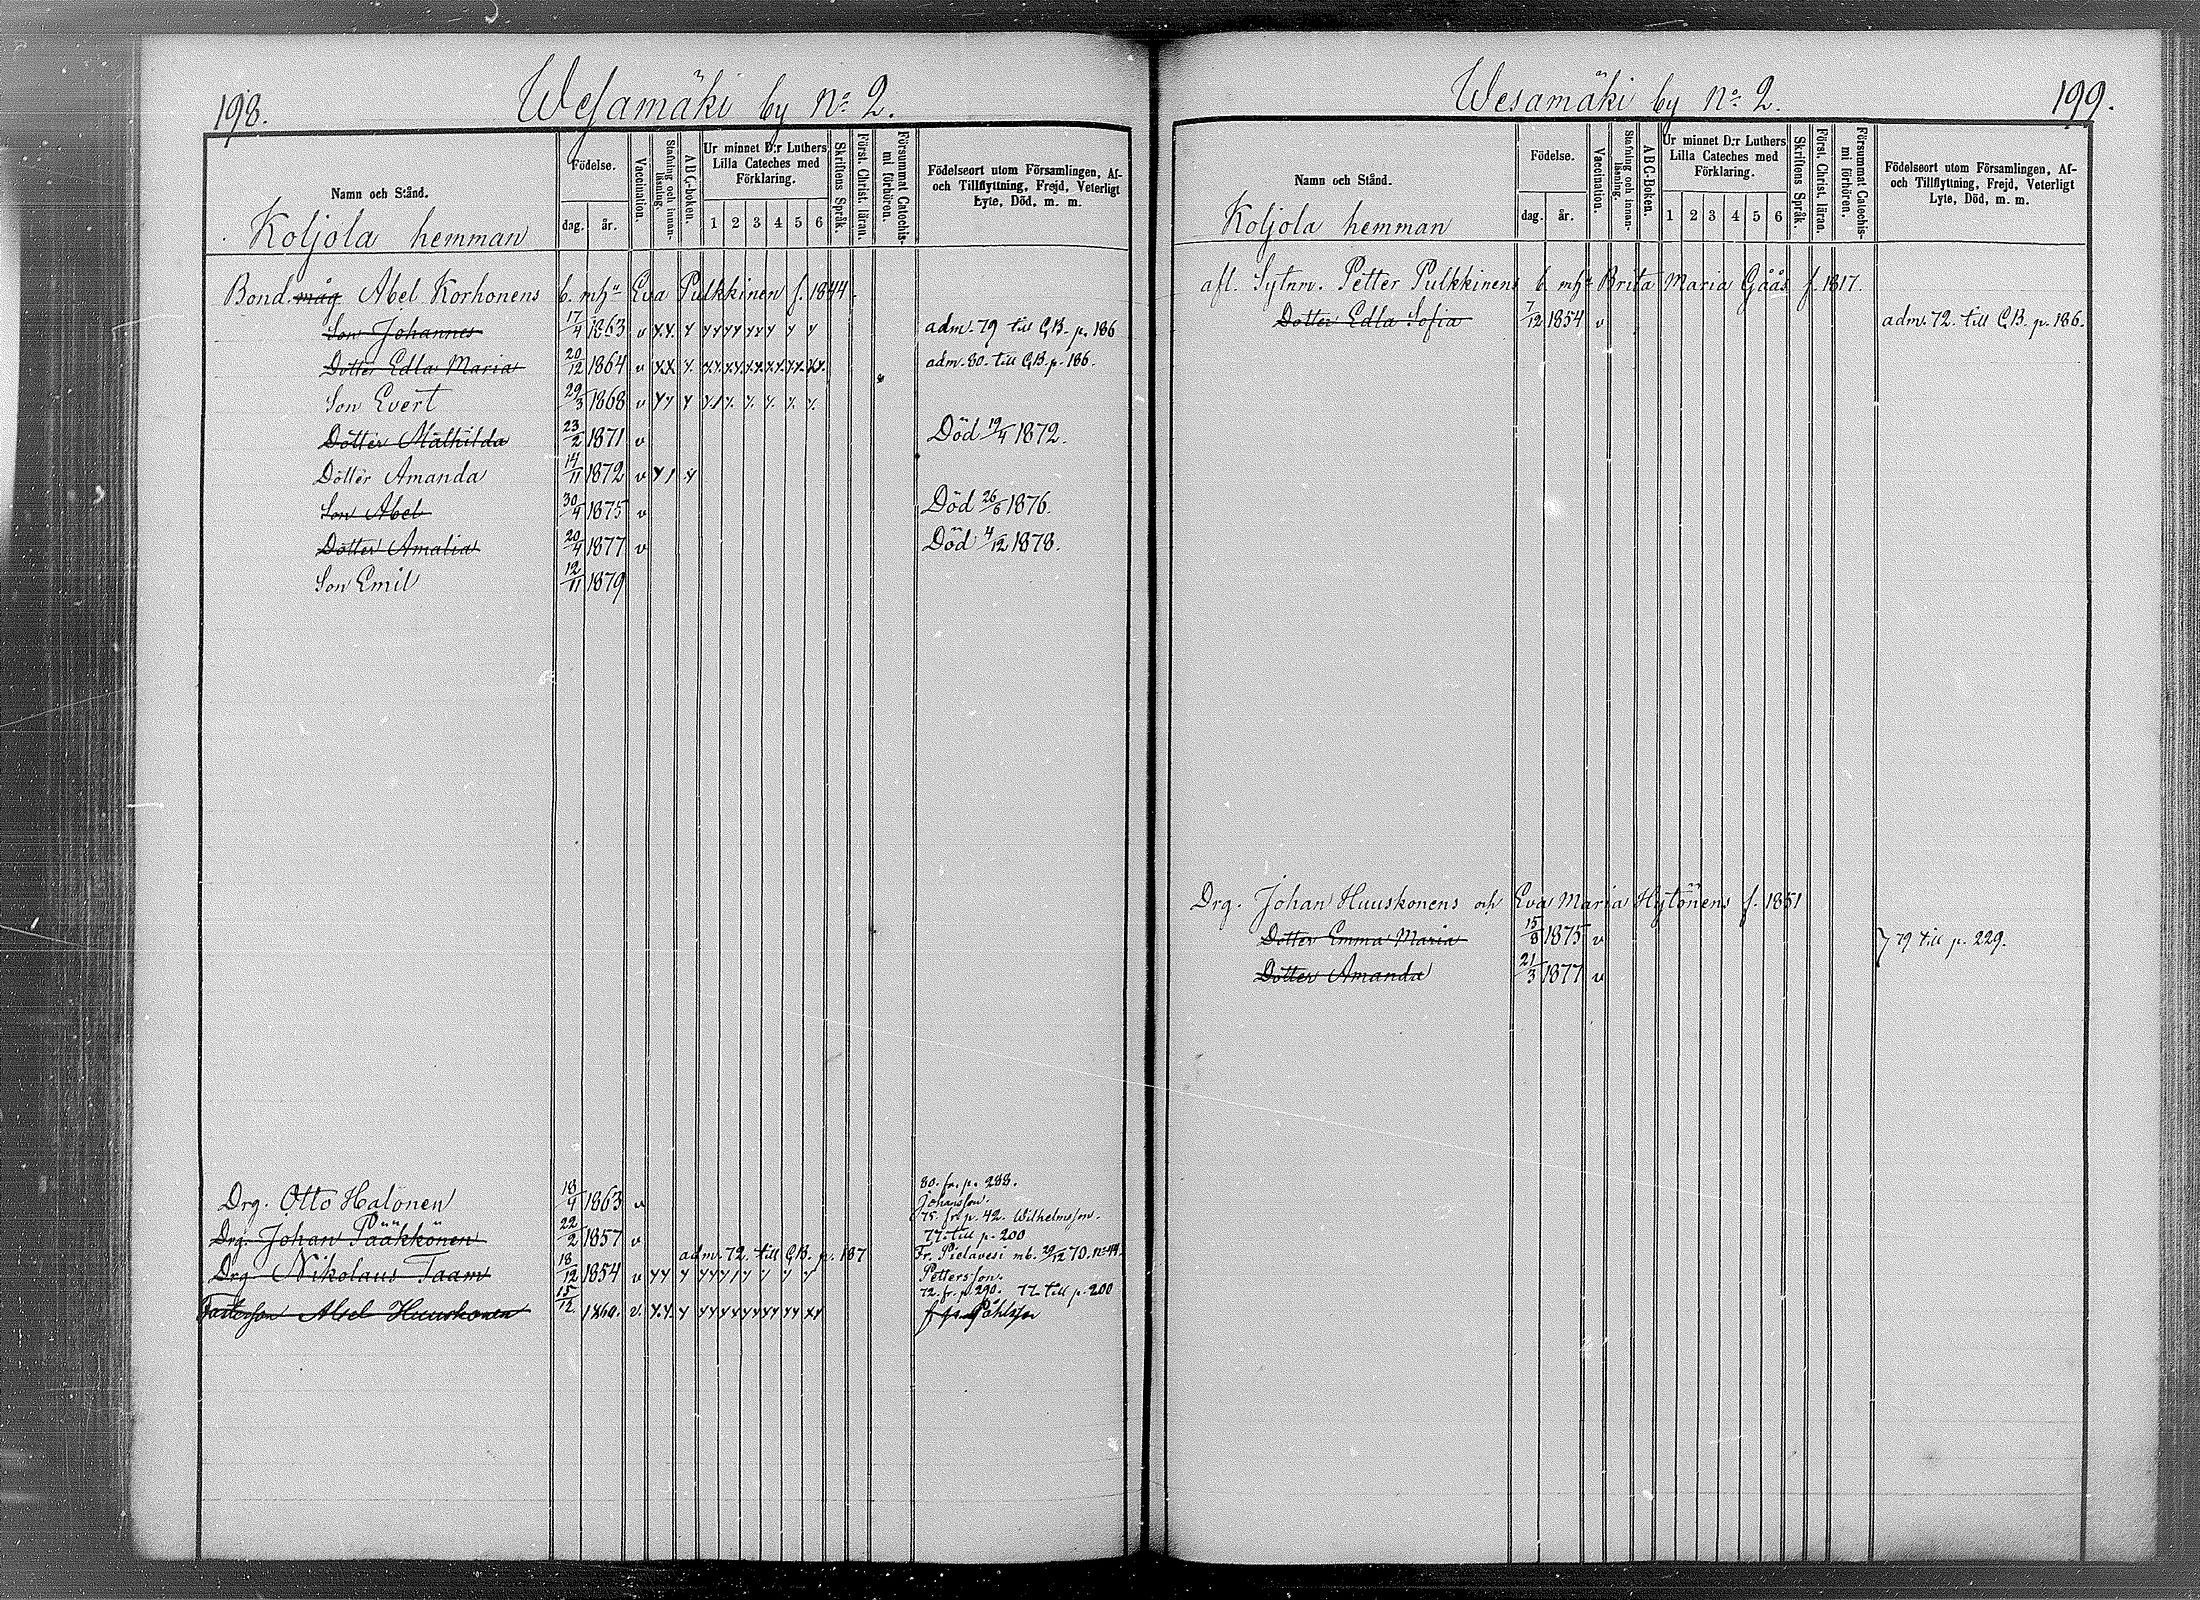 198. Wesamäki by No 2.
Namn och Stånd.
Födelse.
dag. år.
Vaccination.
Stafning och innanläsning.
ABC-boken.
Ur minnet D:r Luthers Lilla Cateches med Förklaring.
1 2 3 4 5 6
Skriftens Språk.
Först. Christ. läran.
Försummat Catechismi förhören.
Födelseort utom Församlingen, Af- och Tillflyttning, Frejd, Veterligt Lyte, Död, m. m.
Koljola hemman
Bond. måg Abel Korhonens b. m h:u Eva Pulkkinen f. 1844.
Son Johannes 17/4 1863 v adm. 79 till C.B. p. 186
Dotter Edla Maria 20/12 1864 v adm. 80. till C.B. p. 186.
Son Evert 29/3 1868 v
Dotter Mathilda 23/2 1871 v Död 19/4 1872.
Dotter Amanda 14/11 1872 v
Son Abel 30/4 1875 v Död 26/6 1876.
Dotter Amalia 20/4 1877 v Död 4/12 1878.
Son Emil 12/11 1879
80. fr. p. 288.
Drg. Otto Halonen 18/4 1863 v Johansson.
75. fr. p. 42. Wilhelmsson.
Drg. Johan Pääkkönen 22/2 1857 v 77. till p. 200
adm. 72. till C.B. p. 187 Fr. Pielavesi mb. 29/12 70. No 44.
Drg. Nikolaus Taam 18/12 1854 v Pettersson.
72. fr. p. 290. 77. till p. 200
Fosterson Abel Huuskonen 15/12 1860. v. Påhlsson
199. Wesamäki by No 2.
Namn och Stånd.
Födelse.
dag. år.
Vaccination.
Stafning och innanläsning.
ABC-Boken.
Ur minnet D:r Luthers Lilla Cateches med Förklaring.
1 2 3 4 5 6
Skriftens Språk.
Först. Christ. läran.
Försummat Catechismi förhören.
Födelseort utom Församlingen, Af- och Tillflyttning, Frejd, Veterligt Lyte, Död, m. m.
Koljola hemman
afl. Sytnm. Petter Pulkkinens b. m h:u Brita Maria Gåås f. 1817.
Dotter Edla Sofia 7/12 1854 v adm. 72. till C.B. p. 186.
Drg. Johan Huuskonens och Eva Maria Hytönens f. 1851
Dotter Emma Maria 15/8 1875 v 79 till p. 229.
Dotter Amanda 21/3 1877 v